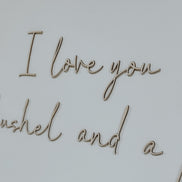 I love you
ushel and a